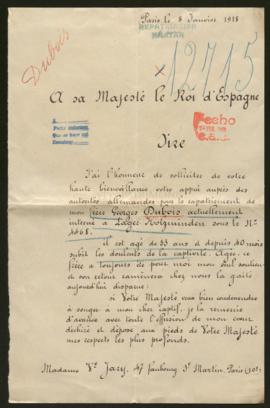 Paris le 8 Janvier 1918
REPATRIACION
Dubois
12715
A sa Majesté le Roi d'Espagne
Fecho
Sire
J'ai l'honneur de solliciter de votre
haute bienveillance votre appui auprès des
autorités allemandes pour le rapatriement de
mon frère Georges Dubois actuellement
interné à Holzminden sous le No
il est agé de 53 ans et depuis 40 mois
subit les de la captivité. Agée, ce
frère a toujours été pour moi mon seul soutien
et son retour ramènera chez nous la gaité
aujourd'hui disparue;
si Votre Majesté veut bien condescendre
à songer à mon cher captif, je la remercie
d'avance avec toute l'effusion de mon cœur
déchiré et dépose aux pieds de Votre Majesté
mes respects les plus profonds.
Madame Ve Jary, 47 faubourg St Martin, Paris (10e)